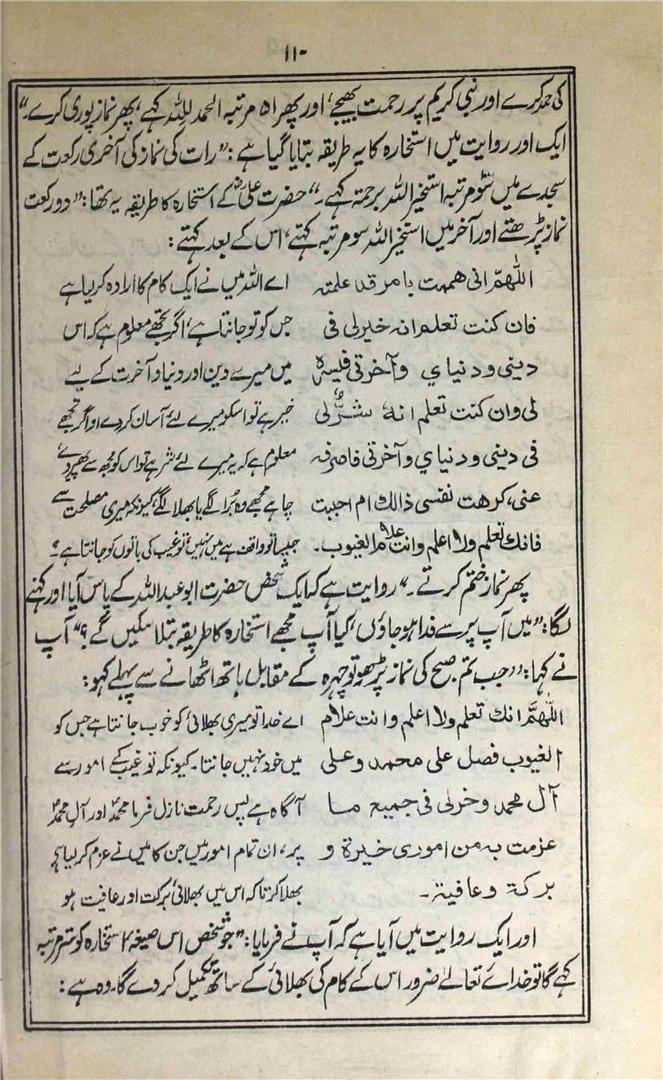 ۱۱۰
کی حمد کرے اور نبی کریم پر رحمت بھیجے، اور پھر ۵۱ مرتبہ الحمد للہ کہے، پھر نماز پوری کرے۔"
ایک اور روایت میں استخارہ کا یہ طریقہ بتایا گیا ہے: "رات کی نماز کی آخری رکعت کے
سجدے میں سو مرتبہ استخیر اللہ برحمۃ کہے۔" حضرت علیؓ کے استخارہ کا طریقہ یہ تھا: "دو رکعت
نماز پڑھتے اور آخر میں استخیر اللہ سو مرتبہ کہتے، اس کے بعد کہتے:
اللّٰھمّ انی ھممت بامر قد علمتہ اے اللہ میں نے ایک کام کا ارادہ کر لیا ہے
فان کنت تعلم انہ خیر لی فی جس کو تو جانتا ہے، اگر تجھے معلوم ہے کہ اس
دینی و دنیای و آخرتی فیسرہ میں میرے دین اور دنیا و آخرت کے لیے
لی وان کنت تعلم انہٗ شرٌّ لی خیر ہے تو اسکو میرے لئے آسان کر دے اور اگر تجھے
فی دینی و دنیای و آخرتی فاصرفہ معلوم ہے کہ یہ میرے لئے شر ہے تو اس کو مجھ سے پھیر دے
عنی، کرھت نفسی ذالک ام احببت چاہے مجھے وہ بُرا لگے یا بھلا لگے، کیونکہ میری مصلحت سے
فانک تعلم ولا اعلم وانت علام الغیوب۔ جیسا تو واقف ہے میں نہیں، تو غیب کی باتوں کو جانتا ہے۔"
پھر نماز ختم کرتے۔" روایت ہے کہ ایک شخص حضرت ابو عبد اللہ کے پاس آیا اور کہنے
لگا: "میں آپ پر سے فدا ہو جاؤں، کیا آپ مجھے استخارہ کا طریقہ بتلا سکیں گے؟" آپ
نے کہا: "جب تم صبح کی نماز پڑھو تو چہرہ کے مقابل ہاتھ اٹھانے سے پہلے کہو:
اللّٰھمَّ انک تعلم ولا اعلم وانت علام اے خدا تو میری بھلائی کو خوب جانتا ہے جس کو
الغیوب فصل علی محمد وعلی میں خود نہیں جانتا۔ کیونکہ تو غیب کے امور سے
آل محمد وخر لی فی جمیع ما آگاہ ہے پس رحمت نازل فرما محمدؐ اور آل محمدؐ
عزمت بہ من اموری خیرة و پر، ان تمام امور میں جن کا میں نے عزم کر لیا ہے
برکة وعافیة۔ بھلا کر تاکہ اس میں بھلائی برکت اور عافیت ہو
اور ایک روایت میں آیا ہے کہ آپ نے فرمایا: "جو شخص اس صیغۂ استخارہ کو ستر مرتبہ
کہے گا تو خدائے تعالےٰ ضرور اس کے کام کی بھلائی کے ساتھ تکمیل کر دے گا۔ وہ ہے: